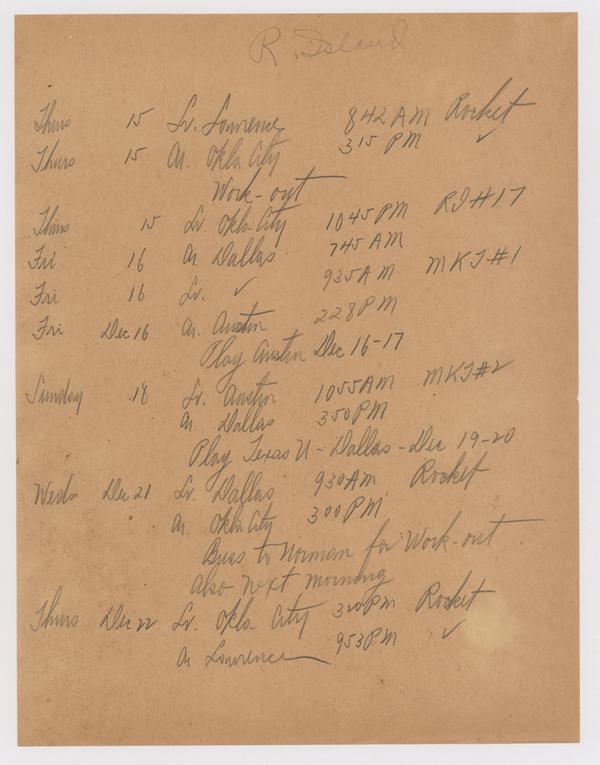 R. Island
Thurs 15 Lv. Lawrence 842 AM Rocket
Thurs 15 Ar. Okla City 315 PM ✓
Work-out
Thurs 15 Lv. Okla. City 1045 PM RI #17
Fri 16 Ar. Dallas 745 AM
Fri 16 Lv. ✓ 935 AM MKT #1
Fri Dec 16 Ar. Austin 228 PM
Play Austin Dec 16-17
Sunday 18 Lv. Austin 1055 AM MKT #2
Ar. Dallas 350 PM
Play Texas U - Dallas - Dec 19-20
Weds Dec 21 Lv. Dallas 930 AM Rocket
Ar. Okla City 300 PM
Buss to Norman for Work-out
also next morning
Thurs Dec 22 Lv. Okla. City 320 PM Rocket
Ar Lawrence 953 PM ✓